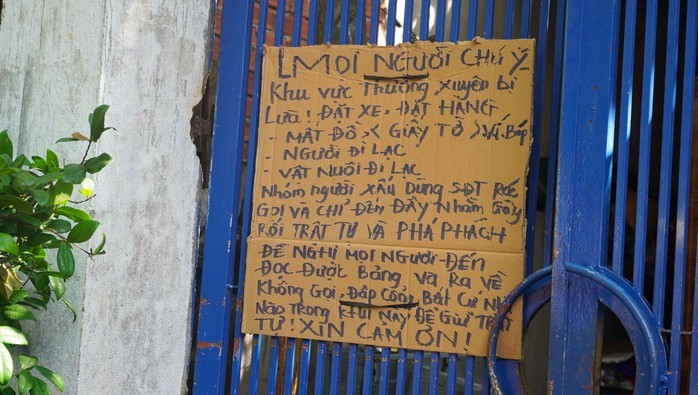 MỌI NGƯỜI CHÚ Ý
Khu vực Thường xuyên bị
Lừa! ĐẶT XE, ĐẶT HÀNG
- MẤT ĐỒ, < GIẤY TỜ > Ví Bóp
- NGƯỜI ĐI LẠC
- VẬT NUÔI ĐI LẠC
Nhóm người xấu Dùng SĐT RÁC
GỌI VÀ CHỈ ĐẾN ĐÂY Nhằm Gây
RỐI TRẬT TỰ VÀ PHÁ PHÁCH
ĐỀ NGHỊ MỌI NGƯỜI ĐẾN
ĐỌC ĐƯỢC BẢNG Và Ra VỀ
Không Gọi, Đập Cổng Bất Cứ Nhà
Nào Trong KHU NÀY ĐỂ GIỮ TRẬT
TỰ! XIN CẢM ƠN!